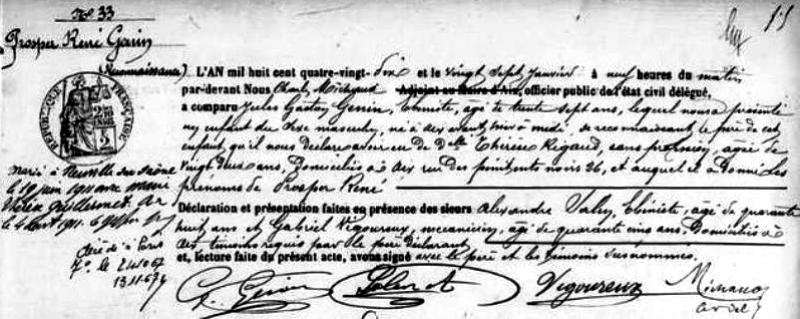 N° 33
15
Prosper René Garin
(Reconnaissance)
L'AN mil huit cent quatre-vingt-dix et le vingt sept janvier à neuf heures du matin
par-devant Nous Charles Michaud Adjoint au Maire d'Aix, officier public de l'état civil délégué,
a comparu Jules Gaston Génin, Ebéniste, âgé de trente sept ans, lequel nous a présenté
un enfant du sexe masculin, né à Aix avant hier à midi, se reconnaissant le père de cet
enfant, qu'il nous déclare avoir eu de Dlle Thérèse Rigaud, sans profession, âgée de
vingt deux ans, Domiciliés à Aix rue des pénitents noirs 26, et auquel il a donné les
prénoms de Prosper René
Déclaration et présentation faites en présence des sieurs Alexandre Ebéniste, âgé de quarante
huit ans et Gabriel Vigouroux, mécanicien, âgé de quarante cinq ans, Domiciliés à
Aix témoins requis par le père déclarant
et, lecture faite du présent acte, avons signé avec le père et les témoins susnommés.
RÉPUBLIQUE FRANÇAISE
Marié à Neuville sur Saône
le 19 juin 1911 avec
le 4 août 1911.
décédé à Paris
7e le
Vigouroux